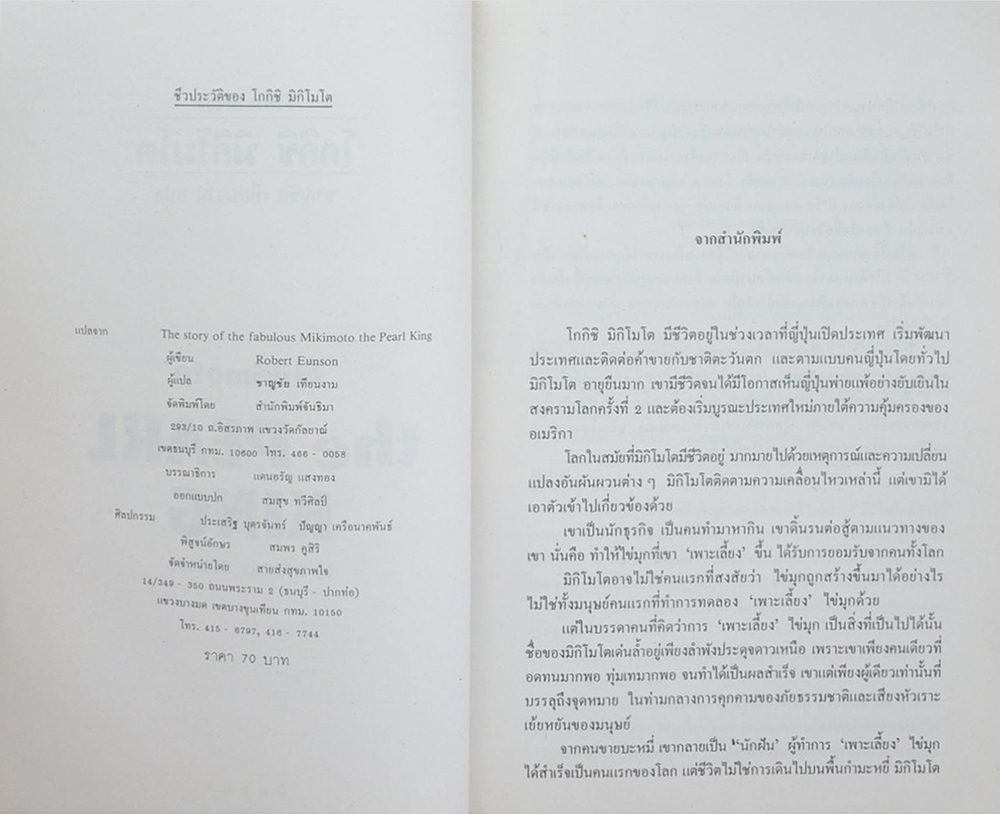 ชีวประวัติของ โกกิชิ มิกิโมโต
แปลจาก The story of the fabulous Mikimoto the Pearl King
ผู้เขียน Robert Eunson
ผู้แปล ชาญชัย เทียนงาม
จัดพิมพ์โดย สำนักพิมพ์จันธิมา
293/10 ถ.อิสรภาพ แขวงวัดกัลยาณ์
เขตธนบุรี กทม. 10600 โทร. 466 - 0058
บรรณาธิการ แดนอรัญ แสงทอง
ออกแบบปก สมสุข ทวีศิลป์
ศิลปกรรม ประเสริฐ บุตรจันทร์ ปัญญา เครือนาคพันธ์
พิสูจน์อักษร สมพร คูสิริ
จัดจำหน่ายโดย สายส่งสุขภาพใจ
14/349 - 350 ถนนพระราม 2 (ธนบุรี - ปากท่อ)
แขวงบางมด เขตบางขุนเทียน กทม. 10150
โทร. 415 - 6797, 416 - 7744
ราคา 70 บาท
จากสำนักพิมพ์
โกกิชิ มิกิโมโต มีชีวิตอยู่ในช่วงเวลาที่ญี่ปุ่นเปิดประเทศ เริ่มพัฒนา
ประเทศและติดต่อค้าขายกับชาติตะวันตก และตามแบบคนญี่ปุ่นโดยทั่วไป
มิกิโมโต อายุยืนมาก เขามีชีวิตจนได้มีโอกาสเห็นญี่ปุ่นพ่ายแพ้อย่างยับเยินใน
สงครามโลกครั้งที่ 2 และต้องเริ่มบูรณะประเทศใหม่ภายใต้ความคุ้มครองของ
อเมริกา
โลกในสมัยที่มิกิโมโตมีชีวิตอยู่ มากมายไปด้วยเหตุการณ์และความเปลี่ยน
แปลงอันผันผวนต่าง ๆ มิกิโมโตติดตามความเคลื่อนไหวเหล่านี้ แต่เขามิได้
เอาตัวเข้าไปเกี่ยวข้องด้วย
เขาเป็นนักธุรกิจ เป็นคนทำมาหากิน เขาดิ้นรนต่อสู้ตามแนวทางของ
เขา นั่นคือ ทำให้ไข่มุกที่เขา ‘เพาะเลี้ยง’ ขึ้น ได้รับการยอมรับจากคนทั้งโลก
มิกิโมโตอาจไม่ใช่คนแรกที่สงสัยว่า ไข่มุกถูกสร้างขึ้นมาได้อย่างไร
ไม่ใช่ทั้งมนุษย์คนแรกที่ทำการทดลอง ‘เพาะเลี้ยง’ ไข่มุกด้วย
แต่ในบรรดาคนที่คิดว่าการ ‘เพาะเลี้ยง’ ไข่มุก เป็นสิ่งที่เป็นไปได้นั้น
ชื่อของมิกิโมโตเด่นล้ำอยู่เพียงลำพังประดุจดาวเหนือ เพราะเขาเพียงคนเดียวที่
อดทนมากพอ ทุ่มเทมากพอ จนทำได้เป็นผลสำเร็จ เขาแต่เพียงผู้เดียวเท่านั้นที่
บรรลุถึงจุดหมาย ในท่ามกลางการคุกคามของภัยธรรมชาติและเสียงหัวเราะ
เย้ยหยันของมนุษย์
จากคนขายบะหมี่ เขากลายเป็น “นักฝัน’ ผู้ทำการ ‘เพาะเลี้ยง’ ไข่มุก
ได้สำเร็จเป็นคนแรกของโลก แต่ชีวิตไม่ใช่การเดินไปบนพื้นกำมะหยี่ มิกิโมโต